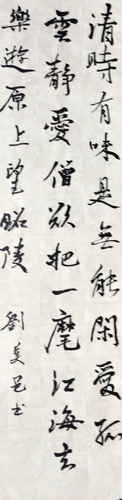 清時有味是無能閑愛孤
雲靜愛僧欲把一麾江海去
樂遊原上望昭陵 劉美邑书